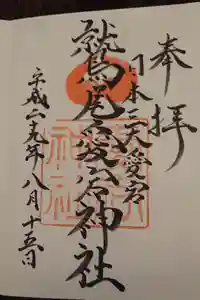 奉拝
日本三大愛宕
鷲尾愛宕神社
平成二十九年八月十五日